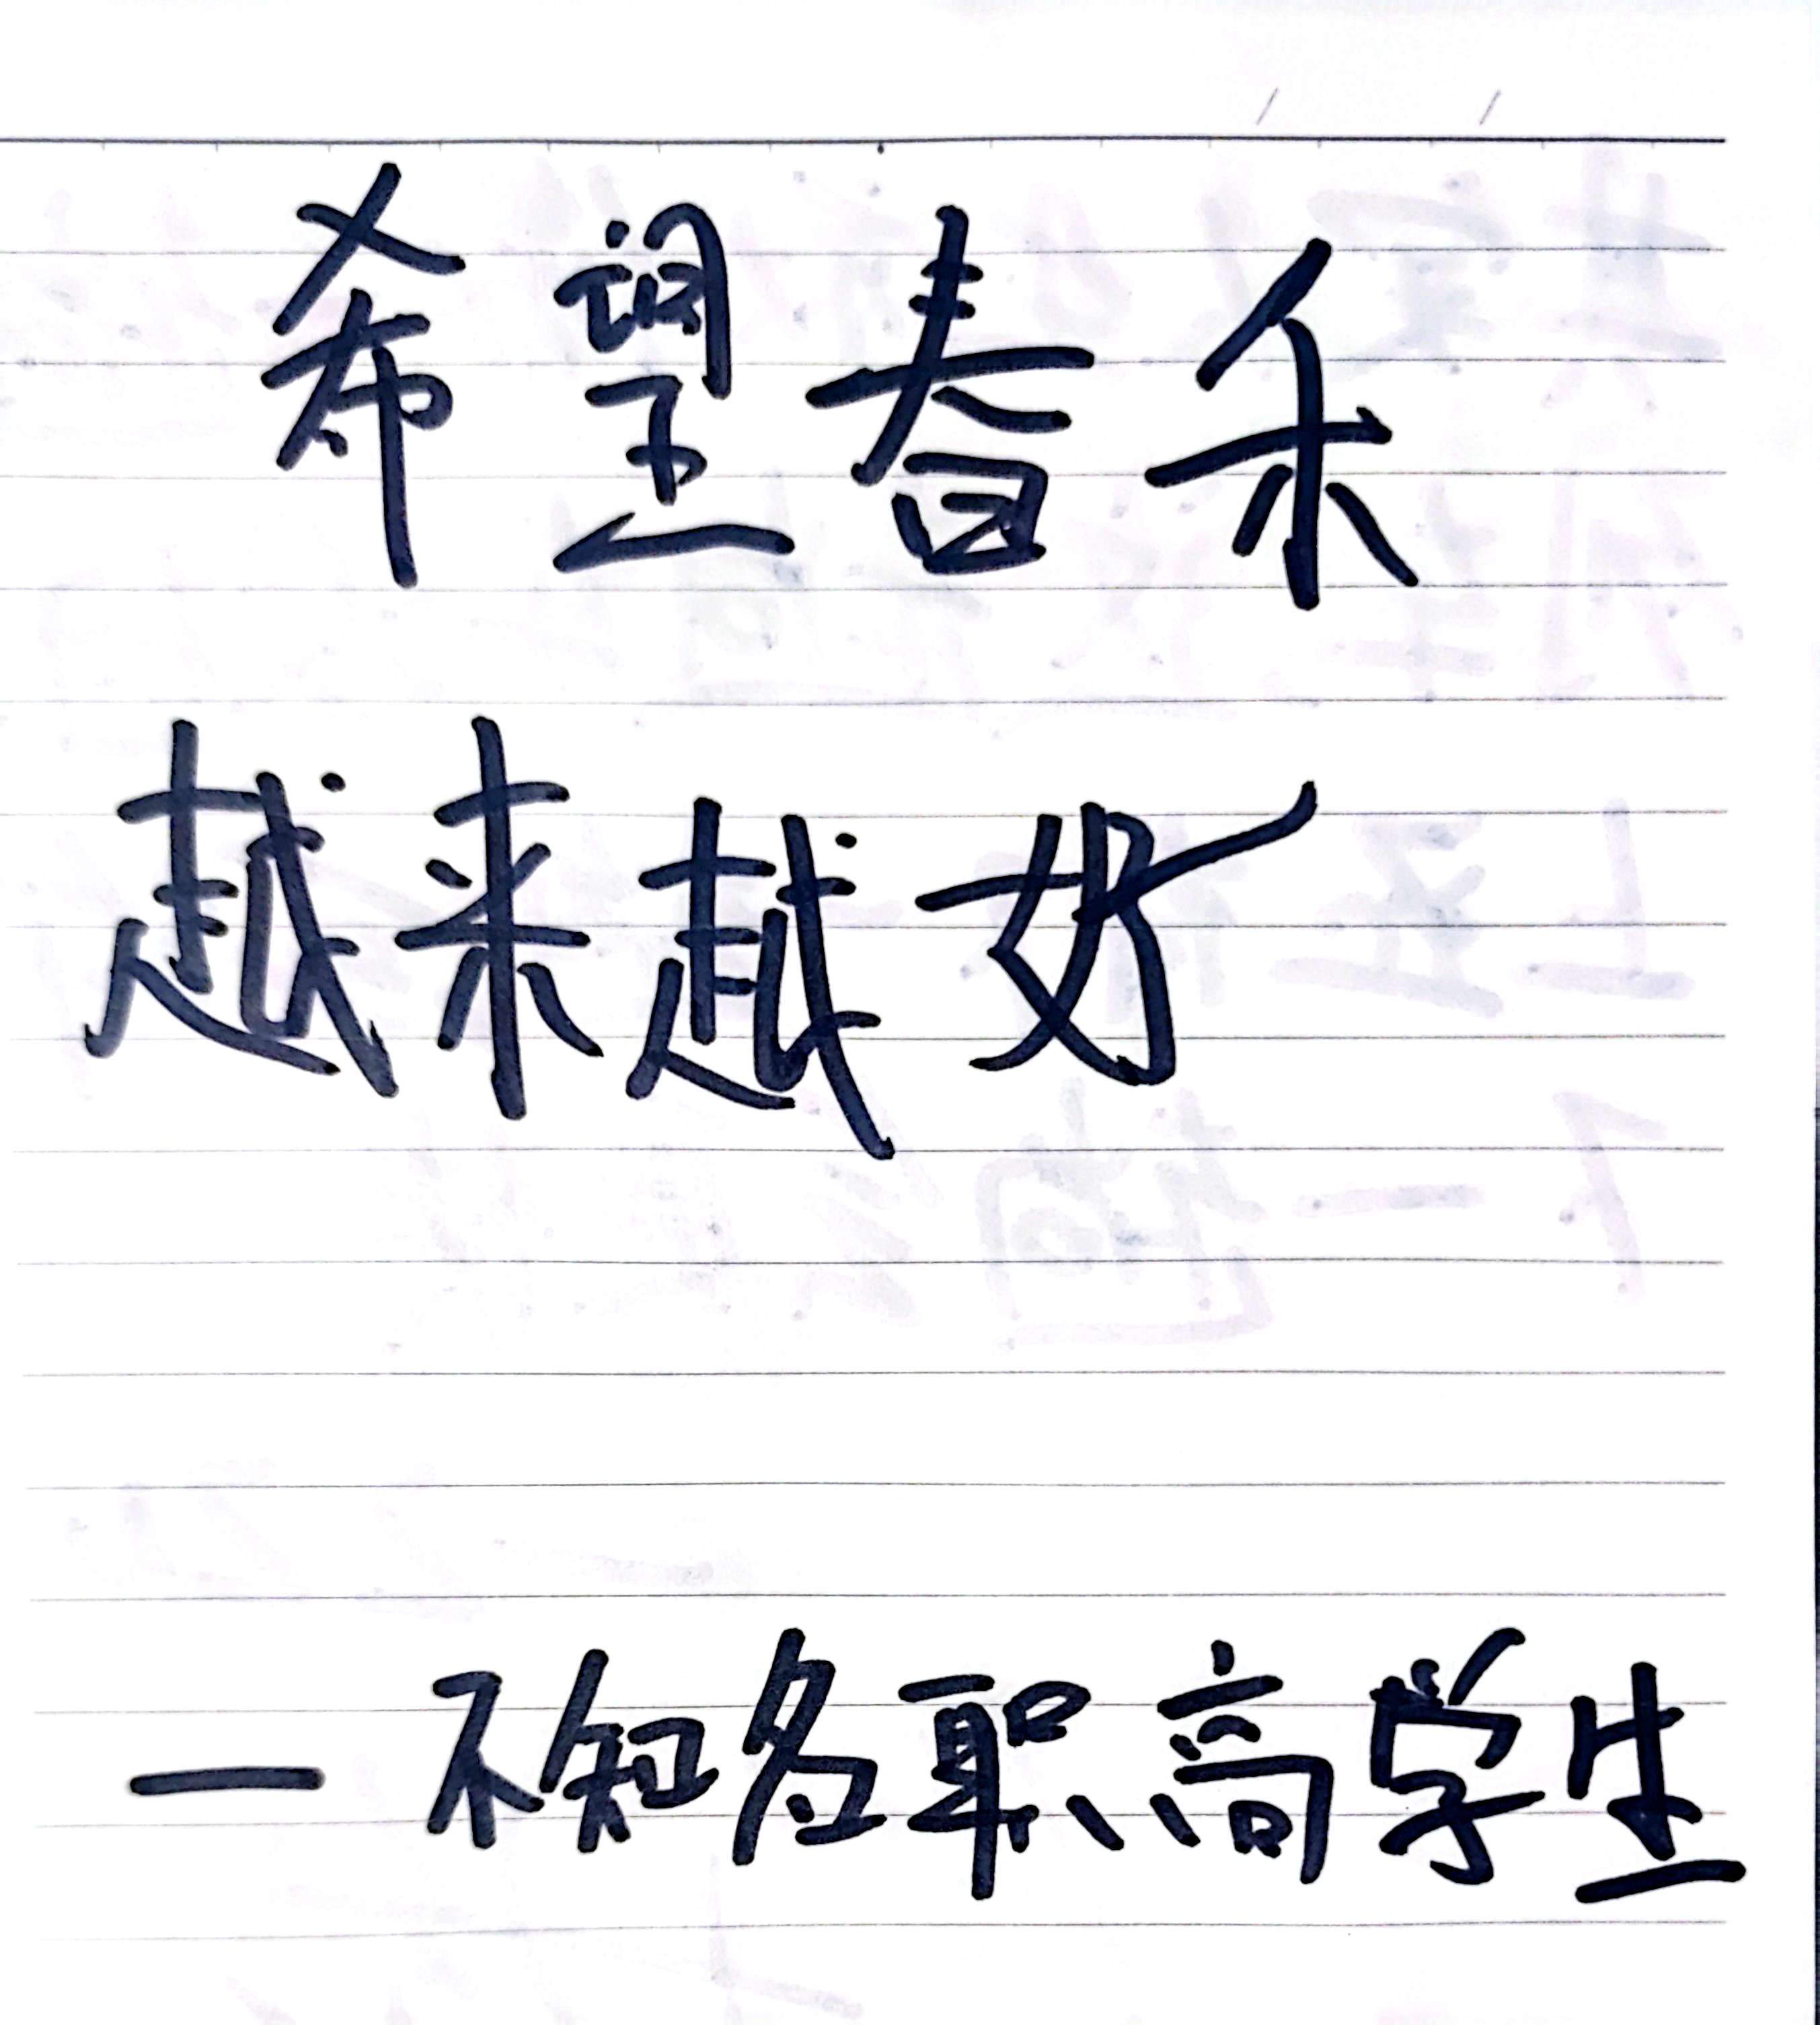 希望春禾
越来越好
一不知名职高学生